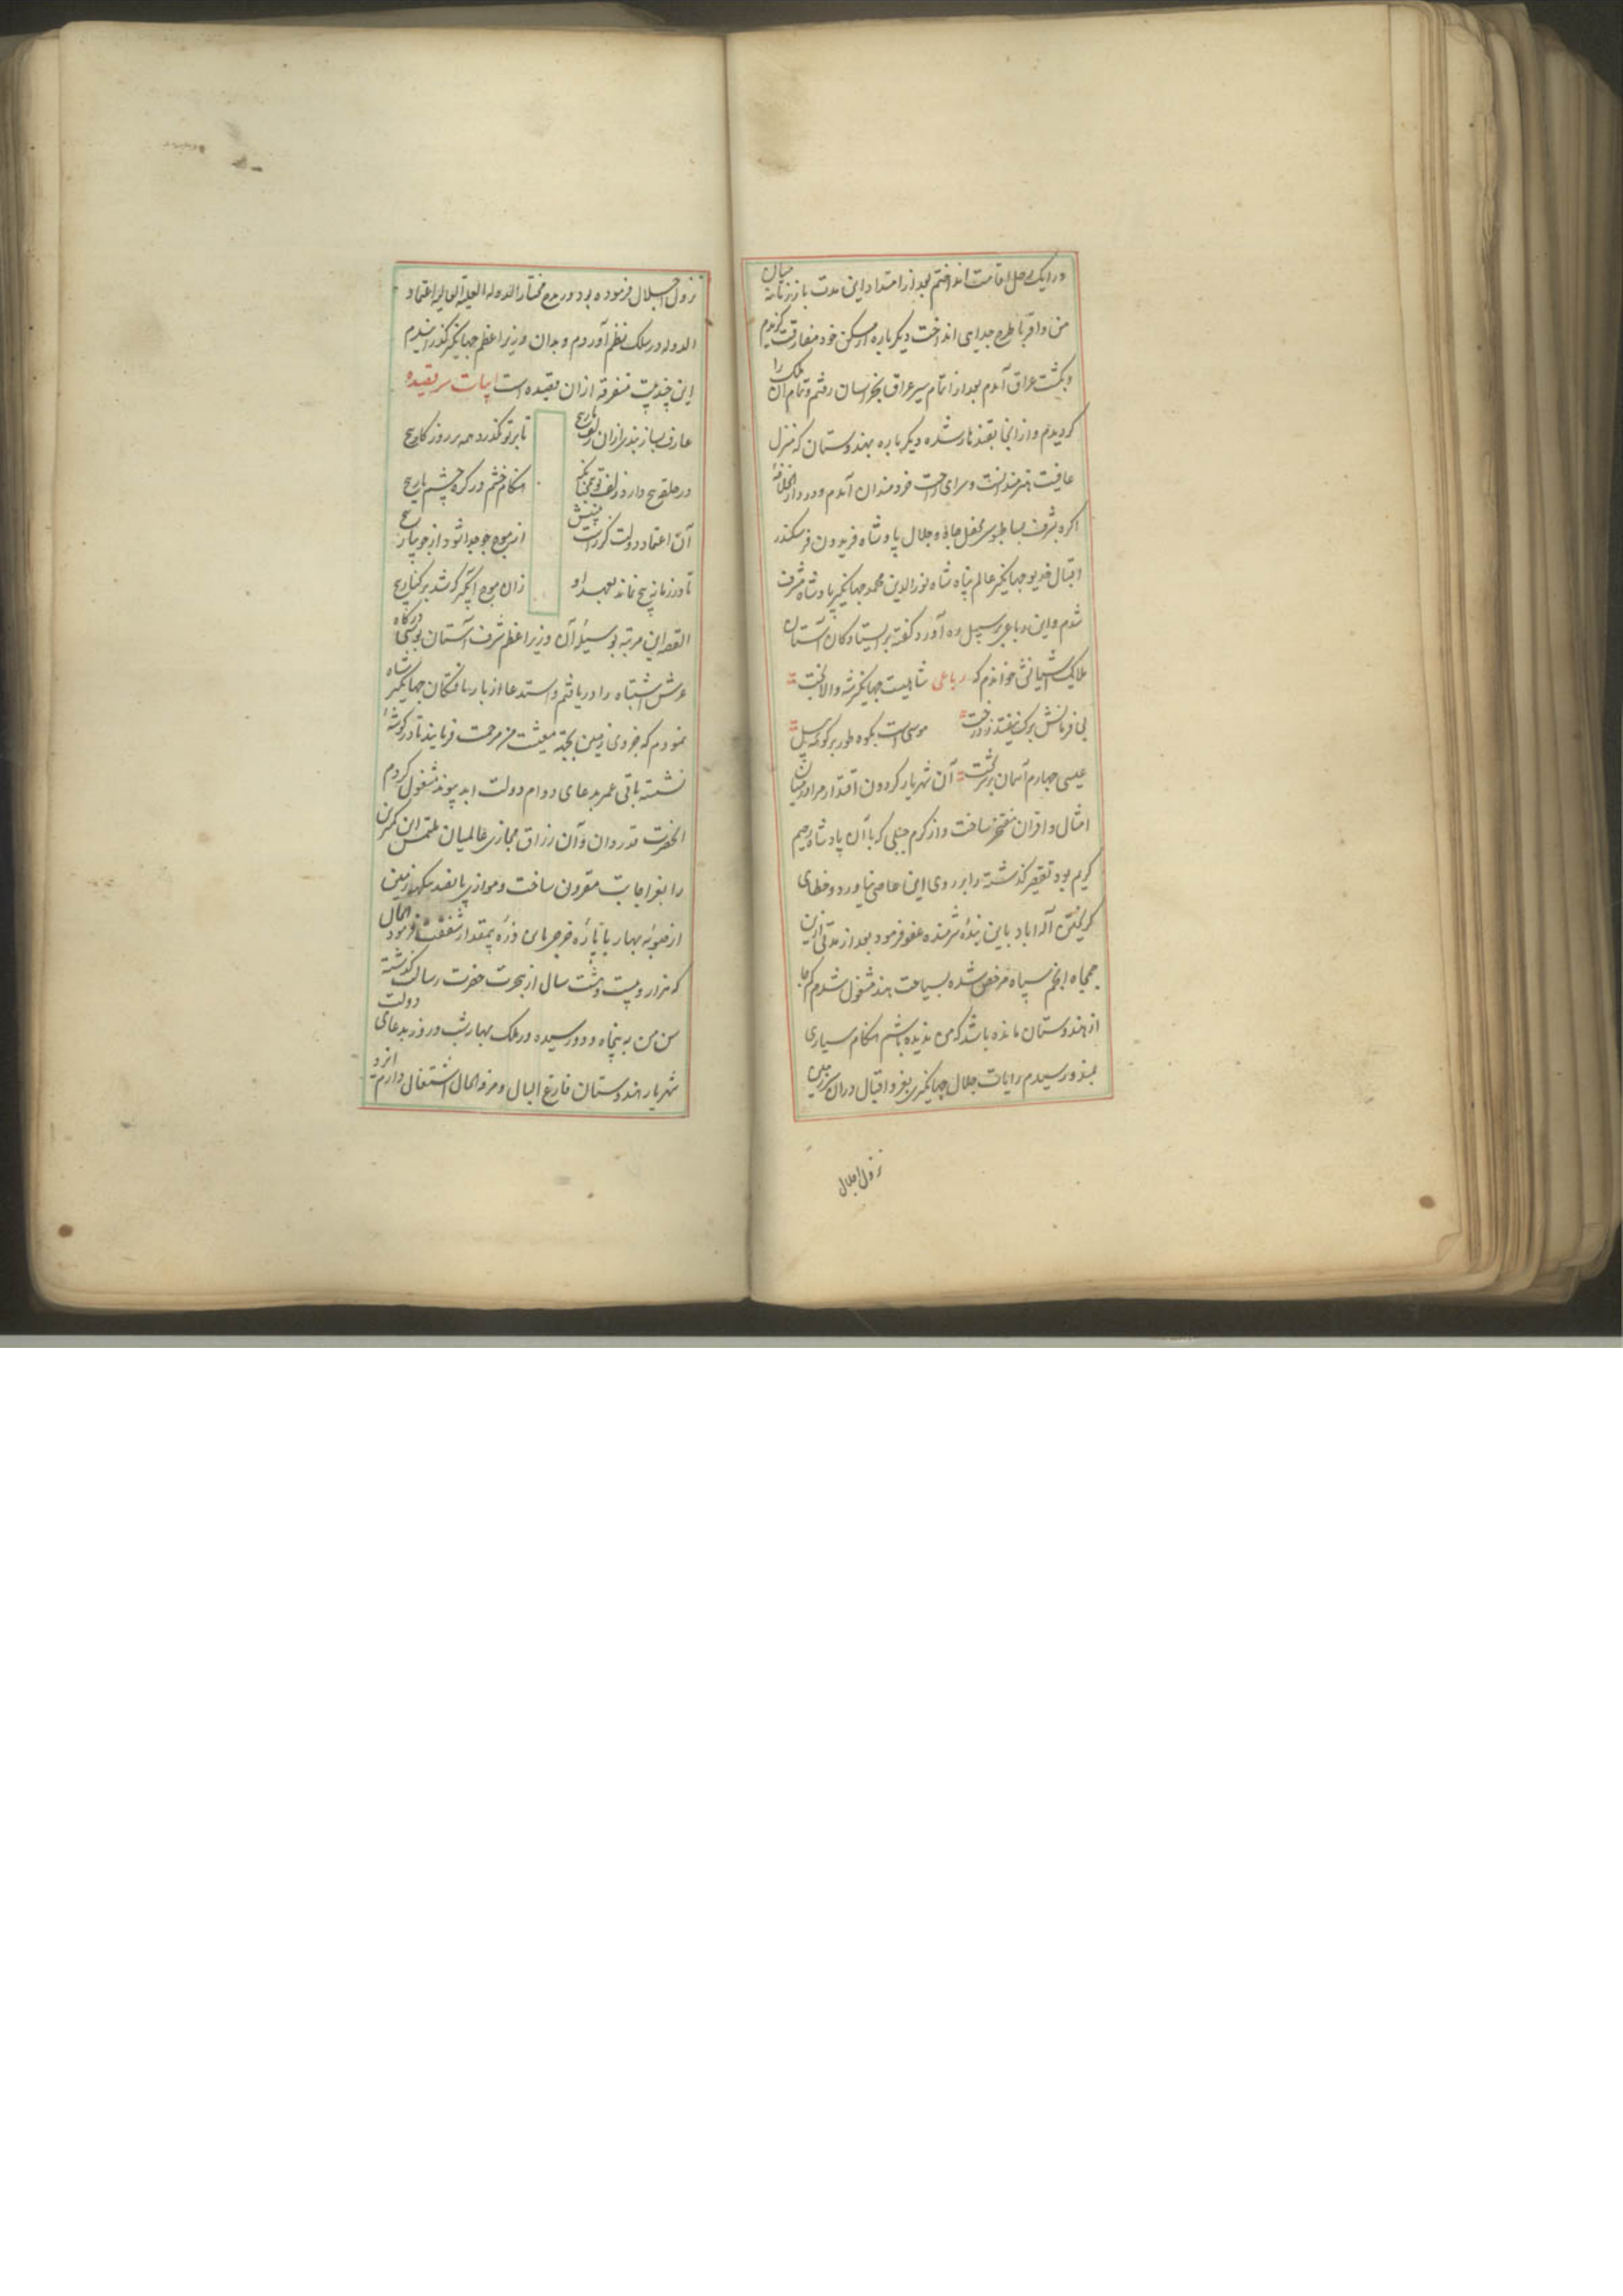 در ایک محل اقامت انداختم بعد از امتداد این مدت باز زمانه میان
من و اقربا طرح جدایی انداخت دیگر باره از مسکن خود مفارقت کزیدم
و بکشت عراق آمدم بعد از اتمام سیر عراق بخراسان رفتم و تمام آن ملک را
کردیدم و از انجا بقندهار شده دیکر باره بهندوستان که منزل
عافیت هنرمندانست و سرای راحت خردمندان آمدم و در دار الخلافهٔ
اکره بشرف بساط بوسی محفل جاه و جلال پادشاه فریدون فر سکندر
اقبال خدیو جهانکیر عالم پناه شاه نورالدین محمد جهانکیر پادشاه مشرف
شدم و این رباعی بر سبیل ره آورد گفته بر ایستادکان آستان
ملایک آشیانش خواندم که رباعی شاهیست جهانکیر شه والا بخت
بی فرمانش برک نیفتد ز درخت موسی است بکوه طور بر کوههٔ پیل
عیسی چهارم آسمان بر سر تخت آن شهریار کردون اقتدار مرا در میان
امثال و اقران مفتخر ساخت و از کرم جبلی که با آن پادشاه رحیم
کریم بود تقصیر کذشته را بر روی این عاصی نیاورد و خطای
کریختن اله اباد باین بندهٔ شرمنده عفو فرمود بعد از مدتی ازین
جمجاه انجم سپاه مرخص شده بسیاحت هند مشغول شدم هر کجا
از هندوستان مانده باشد که من ندیده باشم هنکام سیاری
بمندو رسیدم رایات جلال جهانکیری بعز و اقبال دران سرزمین
نزول اجلال
نزول اجلال فرموده بود در مدح مختار الدوله العلیة العالیه اعتماد
الدوله در سلک نظم آوردم و بدان وزیر اعظم جهانکیر کذرانیدم
این چند بیت متفرقه ازان قصیده است ابیات سر قصیده
عارف بساز بند ازان زلف مار پیچ تا بر تو نکذرد همه بر روز کار پیچ
در حلق پیچ دارد زلف تو همچنانکه هنکام خشم در کره چشم یار پیچ
آن اعتماد دولت کز راست بینیش از موج جو جدا شود از جویبار پیچ
تا در زمانه پیچ نماند بعهد او زان موج آبکیر کشد بر کنار پیچ
القصه این مرتبه بوسیلهٔ آن وزیر اعظم شرف آستان بوسی درکاه
عرش اشتباه را دریافتم و استدعا از باریافتکان جهانکیر شاه
نمودم که جزوی زمین بجهة معیشت من مرحمت فرمایند تا در کوشهٔ
نشسته باقی عمر بدعای دوام دولت ابد پیوند مشغول کردم
انحضرت قدردان و آن رزاق مجازی عالمیان ملتمس این کمترین
را بعز اجابت مقرون ساخت و موازی پانصد بیکهه زمین
از صوبهٔ بهار با پارهٔ خرجی باین ذرهٔ بیمقدار شفقت فرمود الحال
که هزار و بیست و هشت سال از هجرت حضرت رسالت کذشته
سن من به پنجاه و دو رسیده در ملک بهار شب و روز بدعای دولت
شهریار هندوستان فارغ البال و مرفه الحال اشتغال دارم ایزد